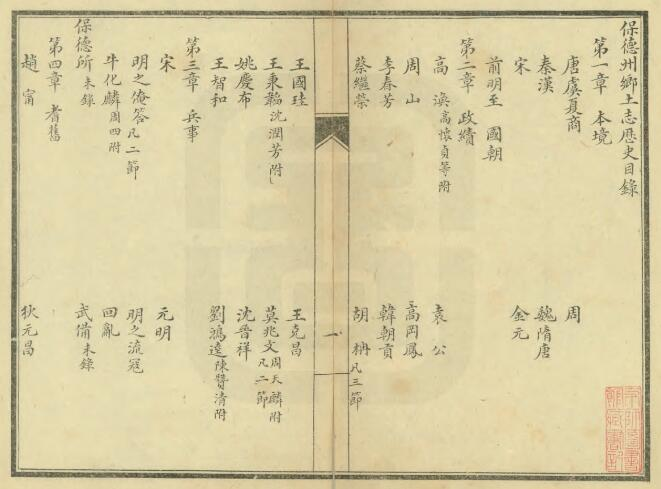 保德州鄉土志歷史目錄
第一章 本境
唐虞夏商 周
秦漢 魏隋唐
宋 金元
前明至 國朝
第二章 政績
高 渙高懷貞等附 袁 公
周 山 高岡鳳
李春芳 韓朝貢
蔡繼榮 胡 枏凡三節
一
王國珪 王克昌
王秉韜沈潤芳附 莫兆文周天麟附凡二節
姚慶布 沈晉祥
王智和 劉鴻逵陳贊清附
第三章 兵事
宋 元明
明之俺答凡二節 明之流寇
牛化麟周四附 回亂
保德所未錄 武備未錄
第四章 耆舊
趙 甯 狄元昌